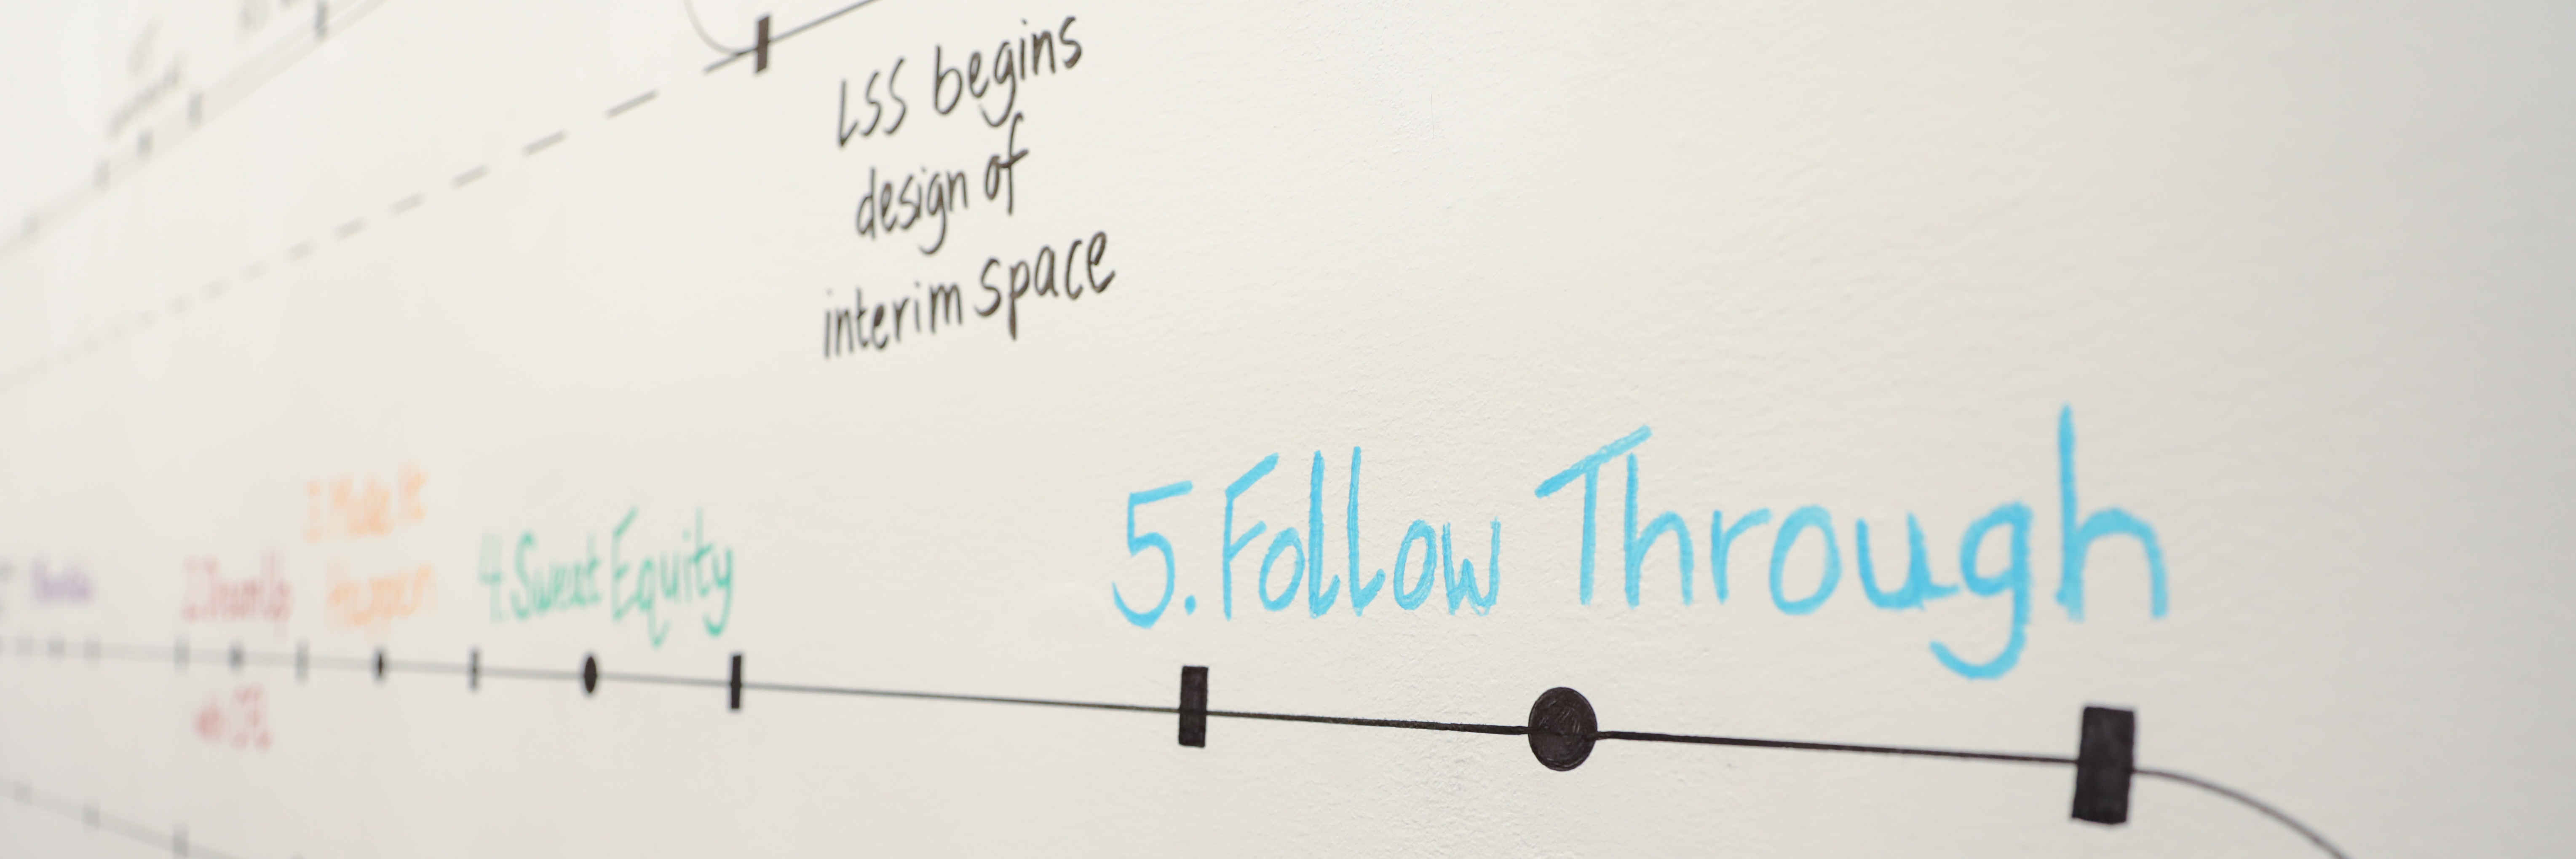 LSS begins
design of
interim space
3. Make It
Happen
4. Sweat Equity
5. Follow Through